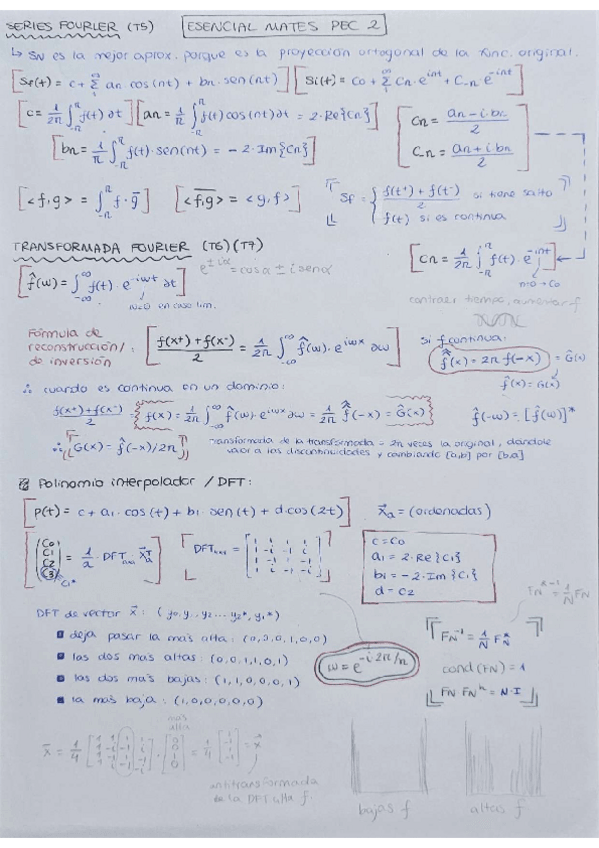 SERIES FOURIER (T5) ESENCIAL MATES PEC 2
↳ SN es la mejor aprox. porque es la proyección ortogonal de la func. original.
[Sf(t) = c + Σ an cos(nt) + bn · sen(nt)] [Si(t) = Co + Σ Cn · e^int + C-n e^-int]
[c = 1/2π ∫ f(t) ∂t] [an = 1/π ∫ f(t) cos(nt) ∂t = 2·Re{Cn}] [Cn = (an - i·bn)/2
[bn = 1/π ∫ f(t) · sen(nt) = -2·Im{Cn}] C-n = (an + i·bn)/2]
[<f,g> = ∫ f·ḡ] [<f,g> = <g,f>] Sf = { (f(t⁺) + f(t⁻))/2 si tiene salto
f(t) si es continua
TRANSFORMADA FOURIER (T6)(T7) e^±iα = cos α ± i sen α [Cn = 1/2π ∫ f(t) · e^-int]
n=0 → Co
[f̂(w) = ∫ f(t) · e^-iwt ∂t]
contraer tiempo, aumentar f
Fórmula de reconstrucción / de inversión: [(f(x⁺) + f(x⁻))/2 = 1/2π ∫ f̂(w) · e^iwx ∂w] si f continua:
f̂̂(x) = 2π f(-x) = Ĝ(x)
f̂(x) = G(x)
∴ cuando es continua en un dominio:
(f(x⁺) + f(x⁻))/2 = f(x) = 1/2π ∫ f̂(w) · e^iwx ∂w = 1/2π f̂̂(-x) = Ĝ(x) f̂(-w) = [f̂(w)]*
∴ G(x) = f̂(-x)/2π Transformada de la transformada = 2π veces la original, dándole
valor a las discontinuidades y cambiando [a,b] por [b,a]
Polinomio interpolador / DFT:
[P(t) = c + a1 · cos(t) + b1 · sen(t) + d·cos(2t)] x⃗a = (ordenadas)
(Co C1 C2 C3) = 1/a · DFT · x⃗a^T
C1*
DFT = [1 1 1 1
1 -i -1 i
1 -1 1 -1
1 i -1 -i]
c = Co
a1 = 2·Re{C1}
b1 = -2·Im{C1}
d = C2
DFT de vector x⃗: (y0, y1, y2 ... y2*, y1*)
deja pasar la más alta: (0,0,0,1,0,0)
las dos más altas: (0,0,1,1,0,1)
las dos más bajas: (1,1,0,0,0,1)
la más baja: (1,0,0,0,0,0)
w = e^-i·2π/n
FN⁻¹ = 1/N FN*
cond(FN) = 1
FN FN^H = N·I
más alta
x⃗ = 1/4 [1 1 1 1
1 i -1 -i
1 -1 1 -1
1 -i -1 i] · [0 0 1 0] = 1/4 [1 -1 1 -1] = x⃗
antitransformada
de la DFT alta f.
bajas f altas f